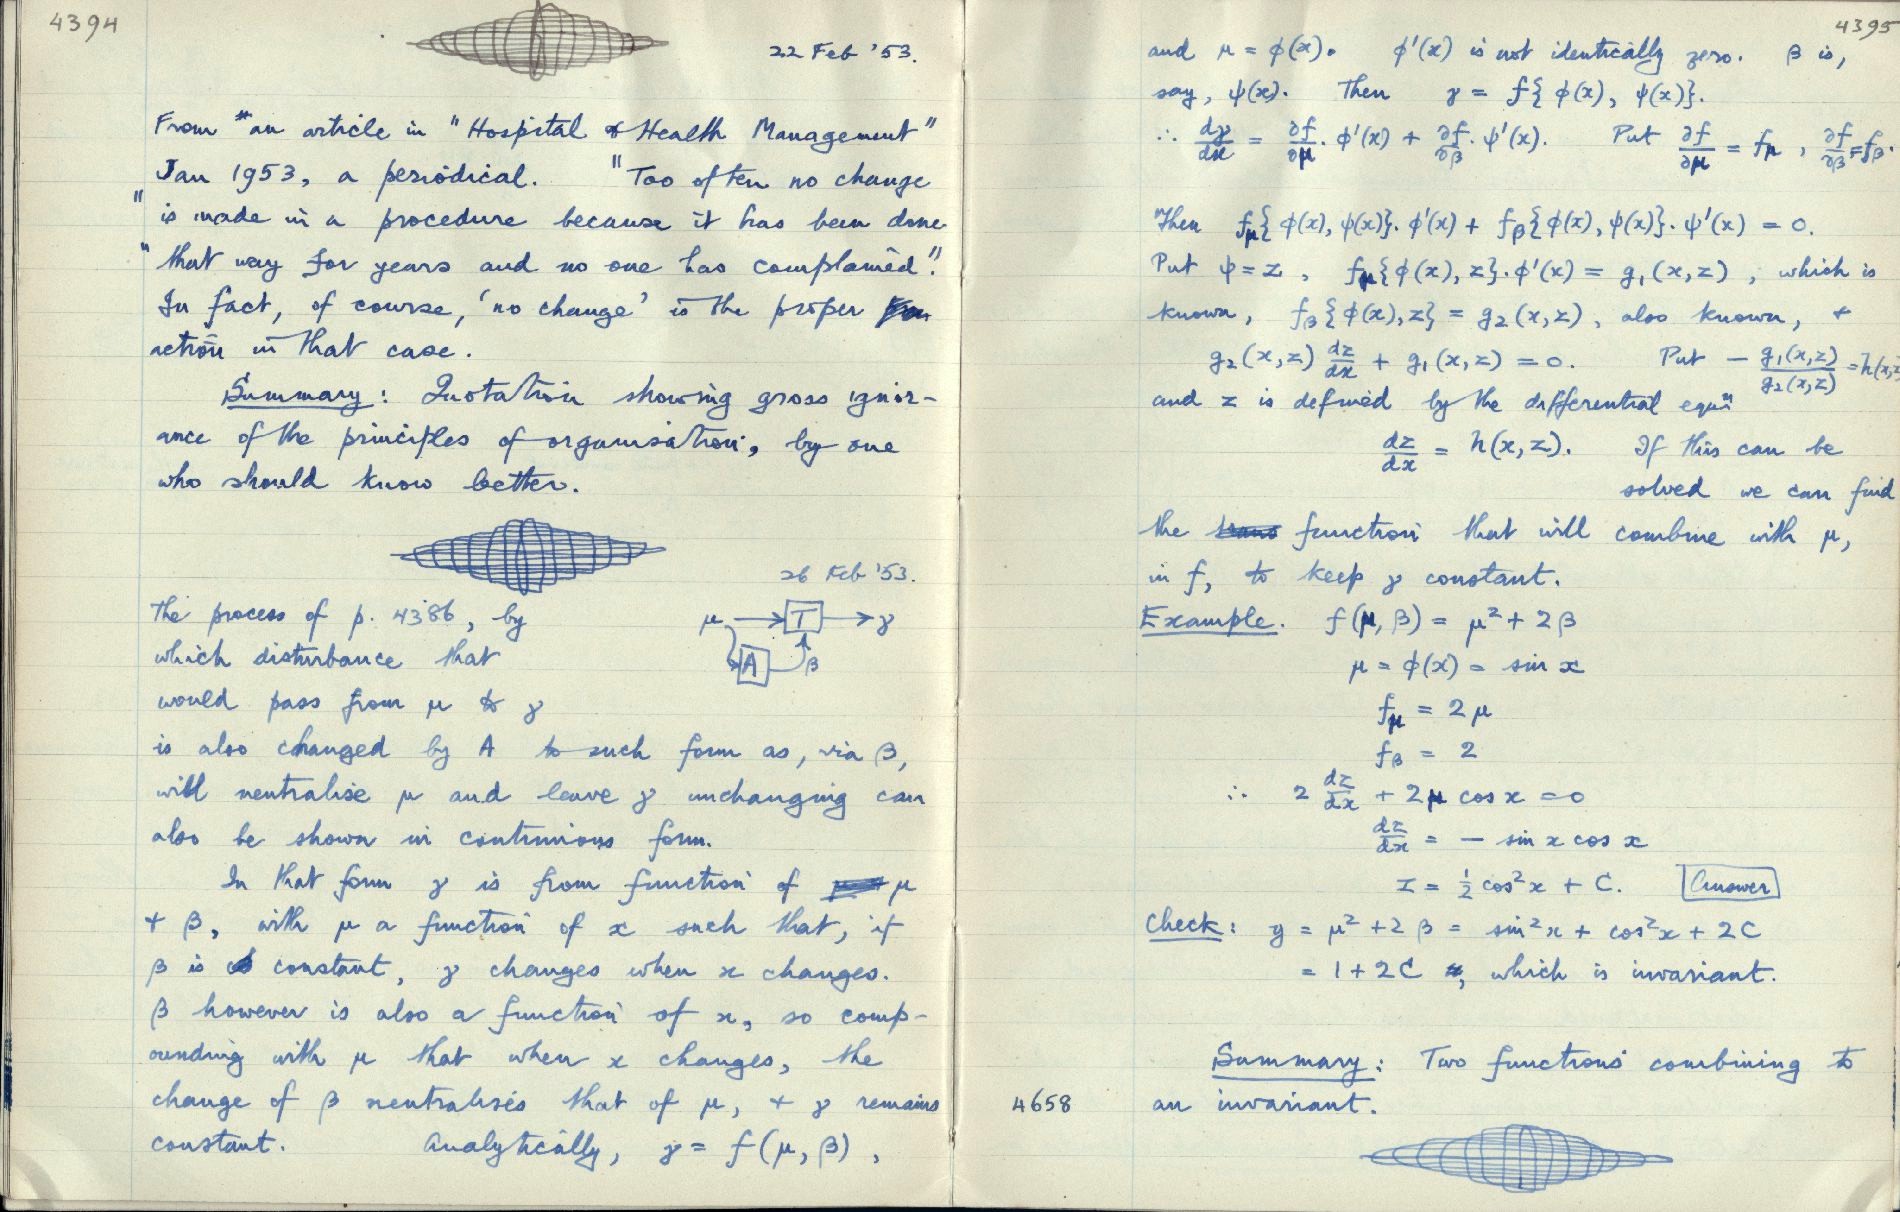 4394
22 Feb '53.
From an article in "Hospital & Health Management"
Jan 1953, a periodical. "Too often no change
"is made in a procedure because it has been done
"that way for years and no one has complained".
In fact, of course, 'no change' is the proper
action in that case.
Summary: Quotation showing gross ignor-
ance of the principles of organisation, by one
who should know better.
26 Feb '53.
The process of p. 4386, by
μ → T → y
which disturbance that
A β
would pass from μ to y
is also changed by A to such form as, via β,
will neutralise μ and leave y unchanging can
also be shown in continuous form.
In that form y is from function of μ
+ β, with μ a function of x such that, if
β is constant, y changes when x changes.
β however is also a function of x, so comp-
ounding with μ that when x changes, the
change of β neutralises that of μ, + y remains
constant. Analytically, y = f(μ, β),
4395
and μ = φ(x). φ'(x) is not identically zero. β is,
say, ψ(x). Then y = f{φ(x), ψ(x)}.
∴ dy/dx = ∂f/∂μ · φ'(x) + ∂f/∂β · ψ'(x). Put ∂f/∂μ = fμ, ∂f/∂β = fβ.
Then fμ{φ(x), ψ(x)}·φ'(x) + fβ{φ(x), ψ(x)}·ψ'(x) = 0.
Put ψ = z, fμ{φ(x), z}·φ'(x) = g₁(x, z), which is
known, fβ{φ(x), z} = g₂(x, z), also known, +
g₂(x, z) dz/dx + g₁(x, z) = 0. Put − g₁(x, z)/g₂(x, z) = h(x, z)
and z is defined by the differential equⁿ
dz/dx = h(x, z). If this can be
solved we can find
the function that will combine with μ,
in f, to keep y constant.
Example. f(μ, β) = μ² + 2β
μ = φ(x) = sin x
fμ = 2μ
fβ = 2
∴ 2 dz/dx + 2μ cos x = 0
dz/dx = − sin x cos x
z = ½ cos² x + C. Answer
Check: y = μ² + 2β = sin² x + cos² x + 2C
= 1 + 2C, which is invariant.
Summary: Two functions combining to
4658
an invariant.